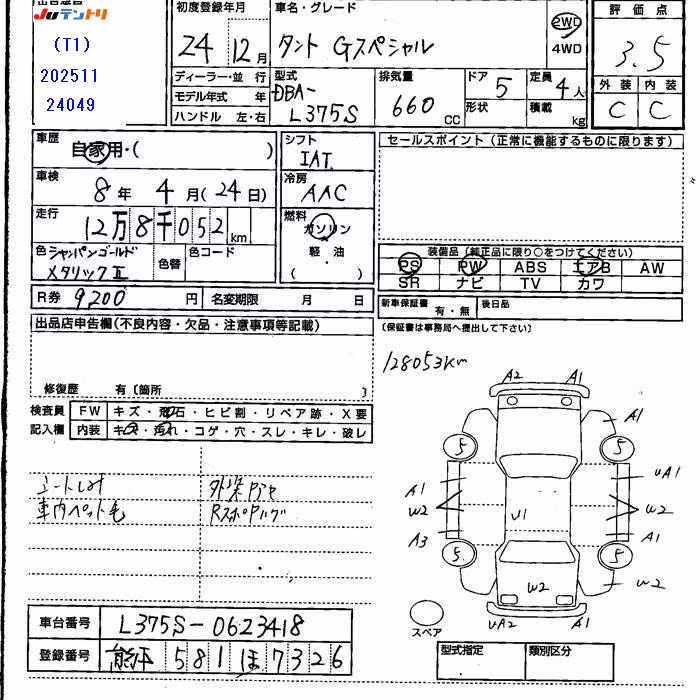 出品番号
Juテントリ
(T1)
202511
24049
初度登録年月
24年 12月
車名・グレード
タント Gスペシャル
2WD
4WD
評価点
3.5
外装 内装
C C
ディーラー・並行
モデル年式 年
ハンドル 左・右
型式
DBA-
L375S
排気量
660 CC
ドア 5
形状
定員 4人
積載 kg
車歴
自家用・( )
シフト
IAT
セールスポイント(正常に機能するものに限ります)
車検
8年 4月(24日)
冷房
AAC
走行
12万8千052km
燃料
ガソリン
軽・油
( )
色 シャンパンゴールド
メタリックII
色替
色コード
装備品(純正品に限り○をつけてください)
PS PW ABS エアB AW
SR ナビ TV カワ
R券 9,200円
名変期限 月 日
新車保証書 有・無
後日品
(保証書は事務局へ提出して下さい)
出品店申告欄(不良内容・欠品・注意事項等記載)
修復歴 有〔箇所 〕
128053km
検査員
記入欄
FW キズ・飛石・ヒビ割・リペア跡・X要
内装 キズ・汚れ・コゲ・穴・スレ・キレ・破レ
車内ペット毛
A2 A1
A1
5 5
A1 UA1
W2 U1 W2
A3 A1
5 5
W2 W2
UA2 A1
スペア
車台番号 L375S-0623418
登録番号 581ほ7326
型式指定 類別区分